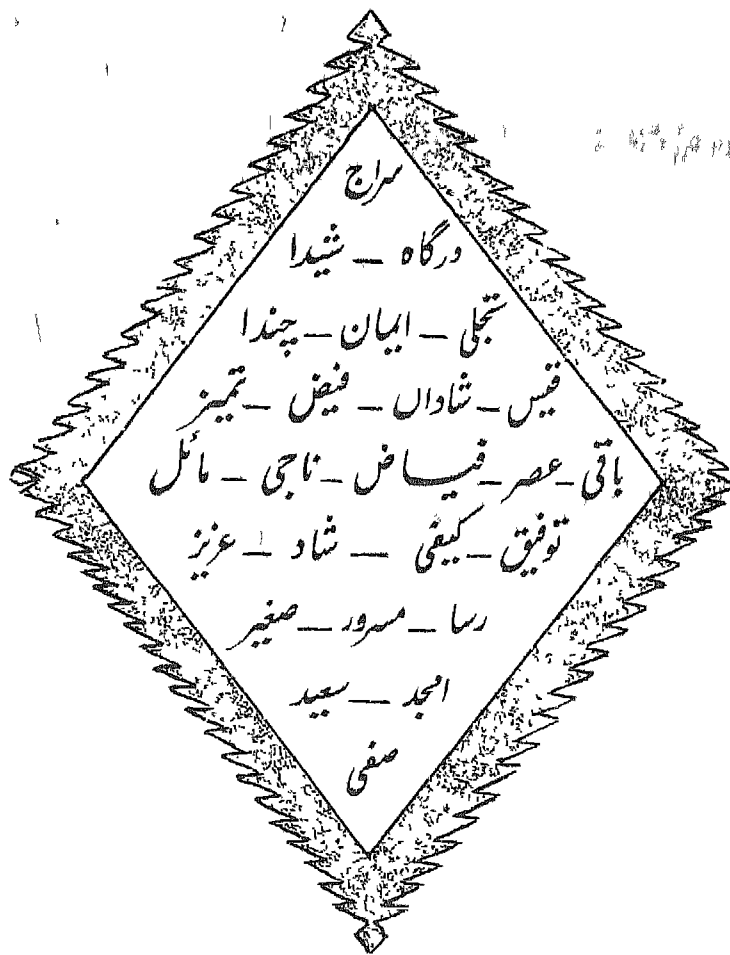 سراج
درگاہ – شیدا
تجلی – ایمان – چندا
قیس – شاداں – فیض – تمیز
باقی – عصر – فیاض – ناجی – مائل
توفیق – کیفی – شاد – عزیز
رسا – مسرور – صغیر
امجد – سعید
صفی